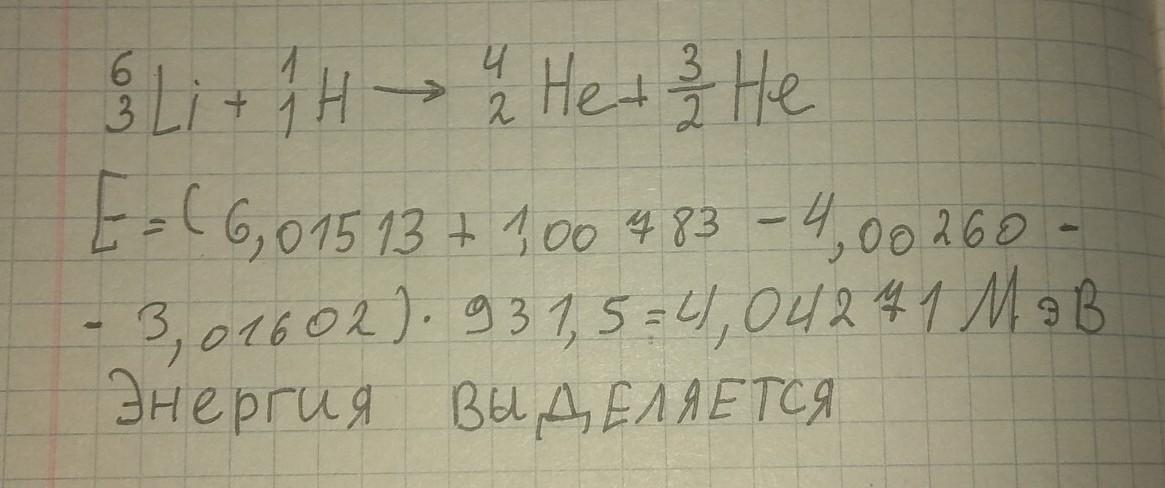 ⁶₃Li + ¹₁H → ⁴₂He + ³₂He
E = (6,01513 + 1,00783 - 4,00260 -
- 3,01602) · 931,5 = 4,04271 МэВ
Энергия выделяется